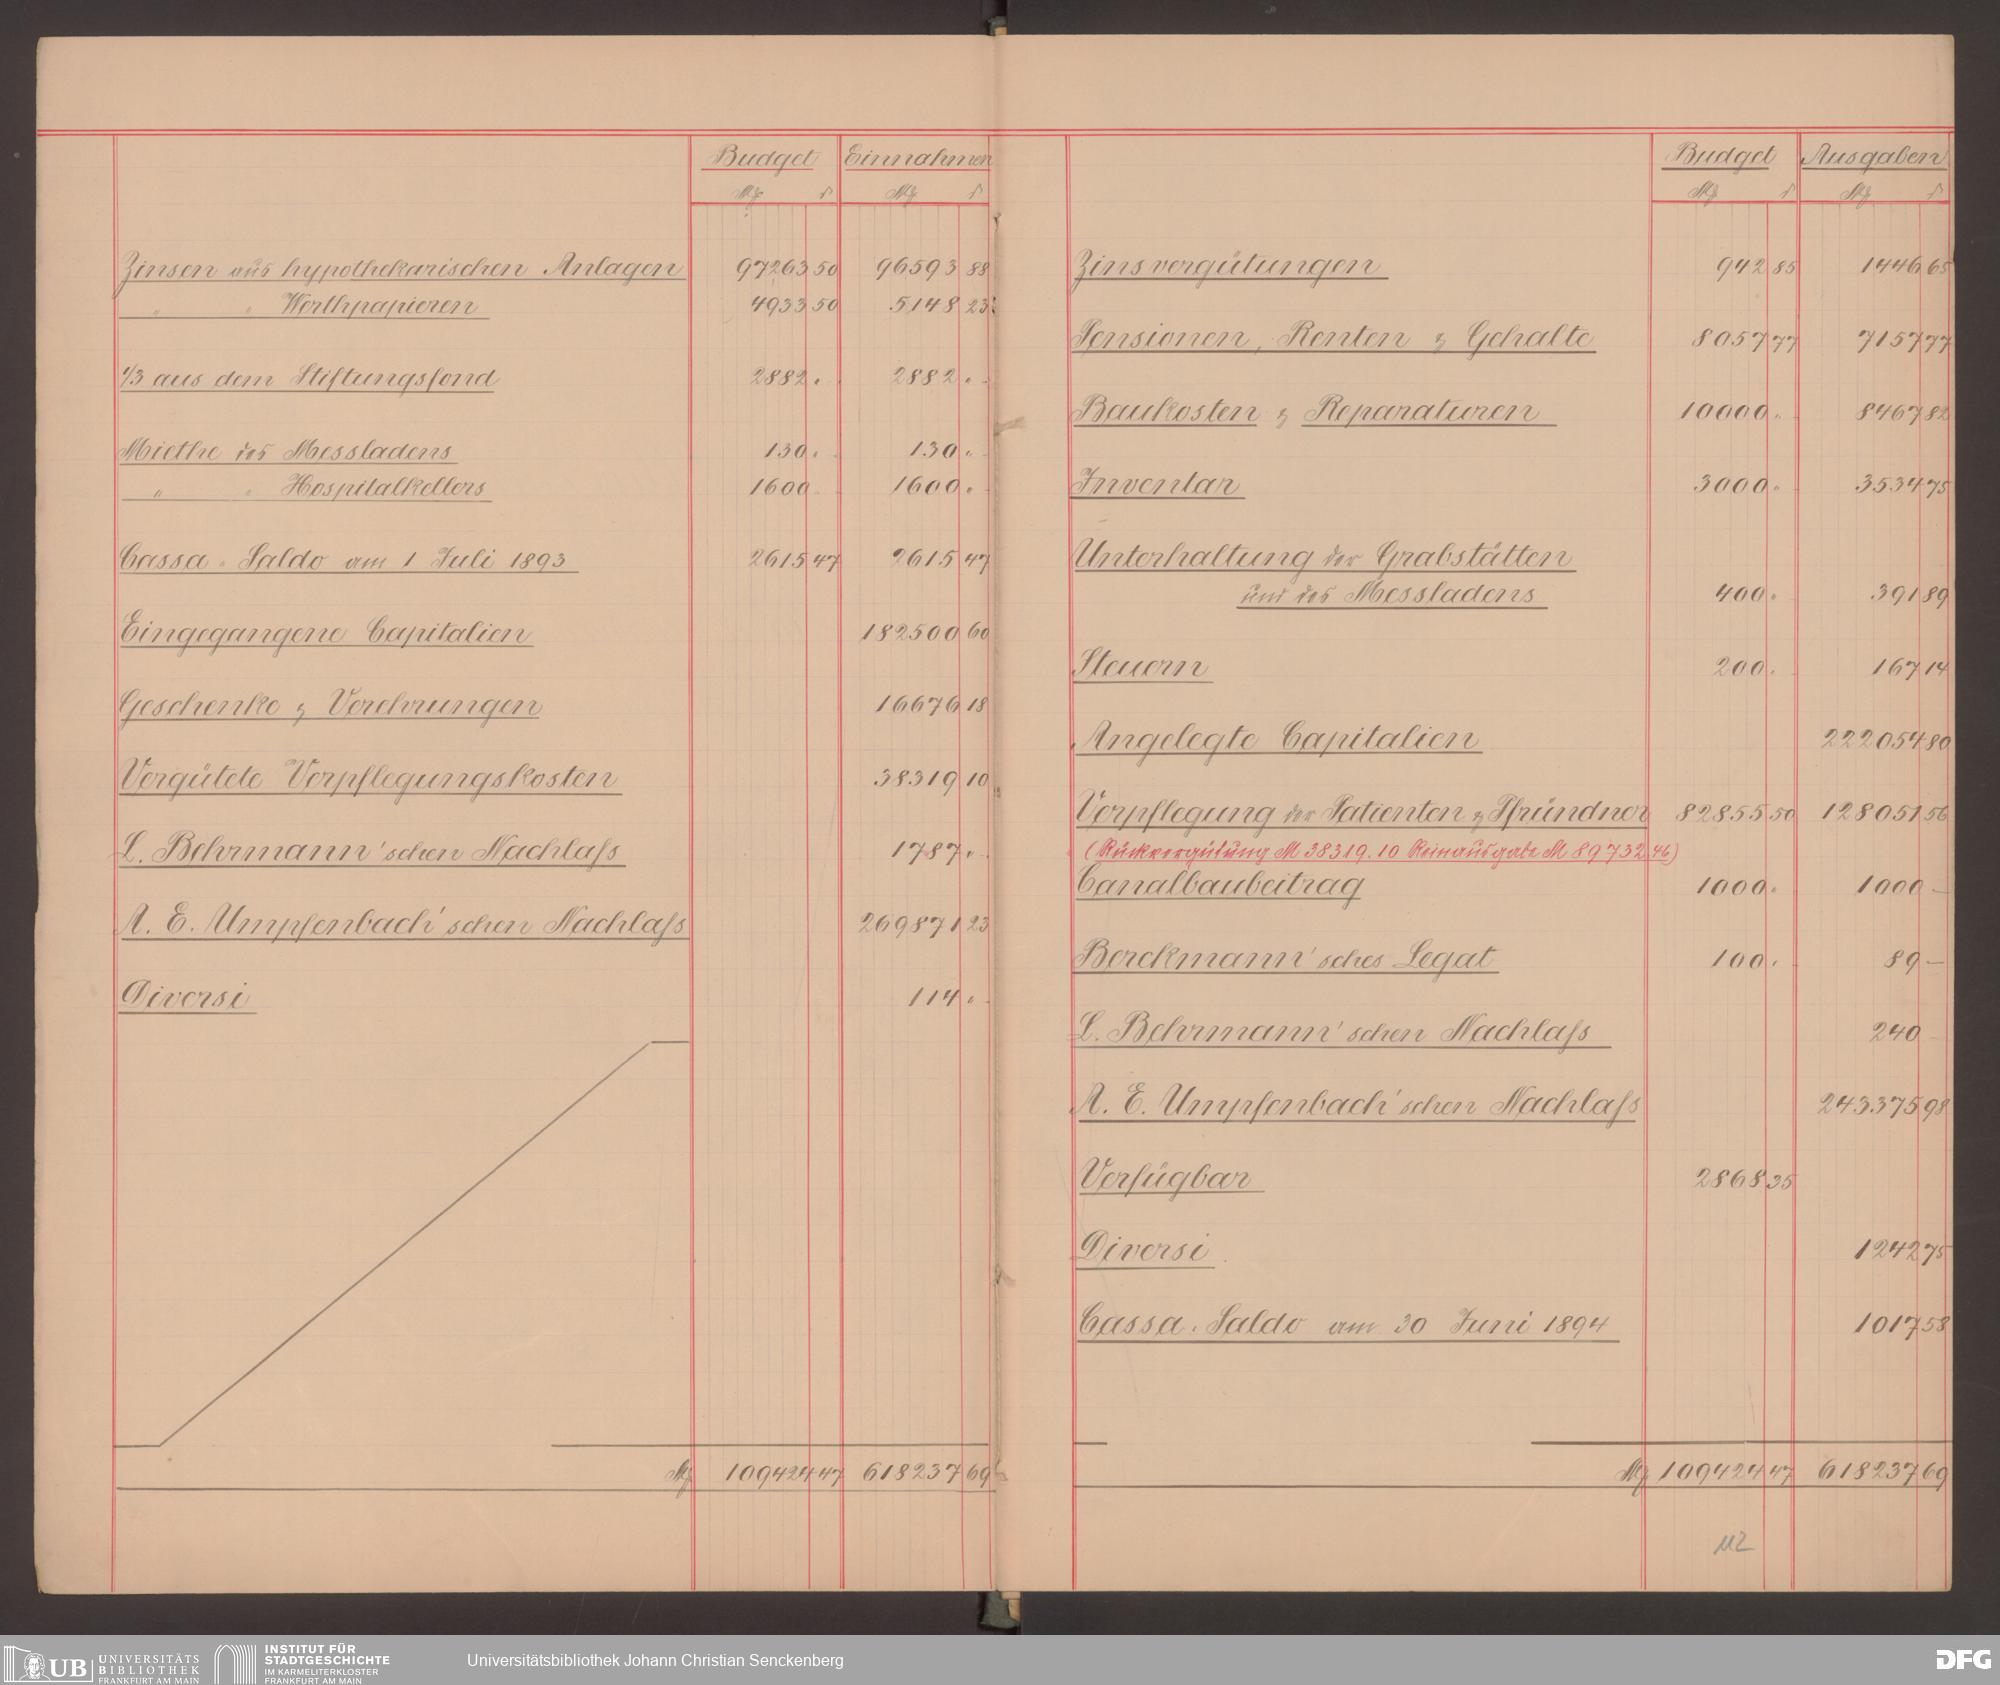 Budget Einnahmen
M ₰ M ₰
Zinsen aus hypothekarischen Anlagen 97263 50 96593 88
" " Werthpapieren 4933 50 5148 23
1/3 aus dem Stiftungsfond 2882 . - 2882 . -
Miethe des Messladens 130 . - 130 . -
" " Hospitalkellers 1600 . - 1600 . -
Cassa-Saldo am 1 Juli 1893 2615 47 2615 47
Eingegangene Capitalien 182500 60
Geschenke & Verehrungen 16676 18
Vergütete Verpflegungskosten 38319 10
L. Behrmann'schen Nachlaſs 1787 . -
A. E. Umpfenbach'schen Nachlaſs 269871 23
Diversi 114 . -
M 109424 47 618237 69
Budget Ausgaben
M ₰ M ₰
Zinsvergütungen 942 85 1446 65
Pensionen, Renten & Gehalte 8057 77 7157 77
Baukosten & Reparaturen 10000 . - 8467 82
Inventar 3000 . - 3534 75
Unterhaltung der Grabstätten
und des Messladens 400 . - 391 89
Steuern 200 . - 167 14
Angelegte Capitalien 222054 80
Verpflegung der Patienten & Pfründner 82855 50 128051 56
(Rückvergütung M 38319.10 Reinausgabe M 89732.46)
Canalbaubeitrag 1000 . - 1000 -
Berckmann'sches Legat 100 . - 89 -
L. Behrmann'schen Nachlaſs 240 -
A. E. Umpfenbach'schen Nachlaſs 243375 98
Verfügbar 2868 35
Diversi 1242 75
Cassa-Saldo am 30 Juni 1894 1017 58
M 109424 47 618237 69
112
UB UNIVERSITÄTS
BIBLIOTHEK
FRANKFURT AM MAIN
INSTITUT FÜR
STADTGESCHICHTE
IM KARMELITERKLOSTER
FRANKFURT AM MAIN
Universitätsbibliothek Johann Christian Senckenberg
DFG